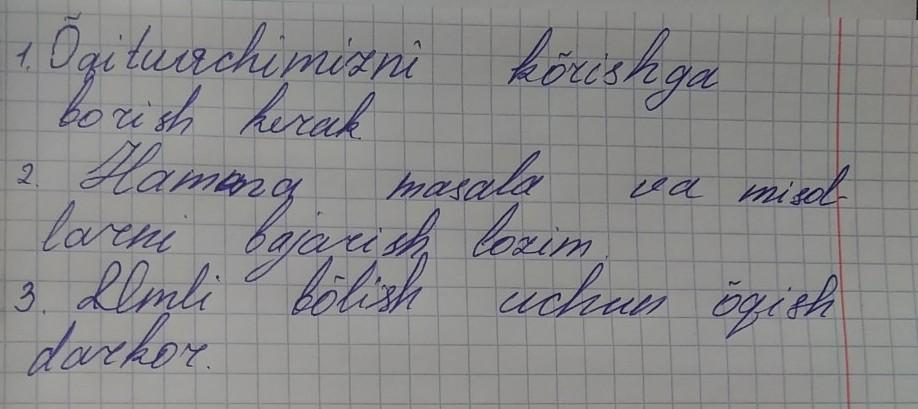 1. Õqituvchimizni kõrishga
borish kerak
2. Hamma masala va misol-
larni bajarish lozim.
3. Ilmli bõlish uchun õqish
darkor.